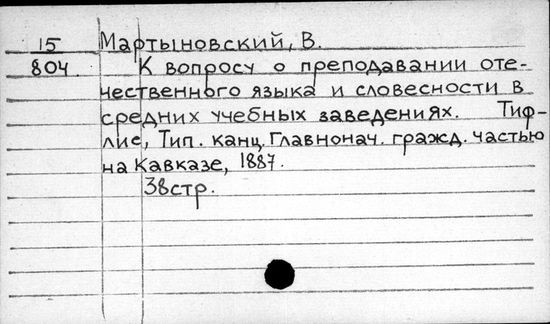 15 Мартыновский, В.
804. К вопросу о преподавании оте-
чественного языка и словесности в
средних учебных заведениях. Тиф-
лис, Тип. канц. Главнонач. гражд. частью
на Кавказе, 1887.
38стр.